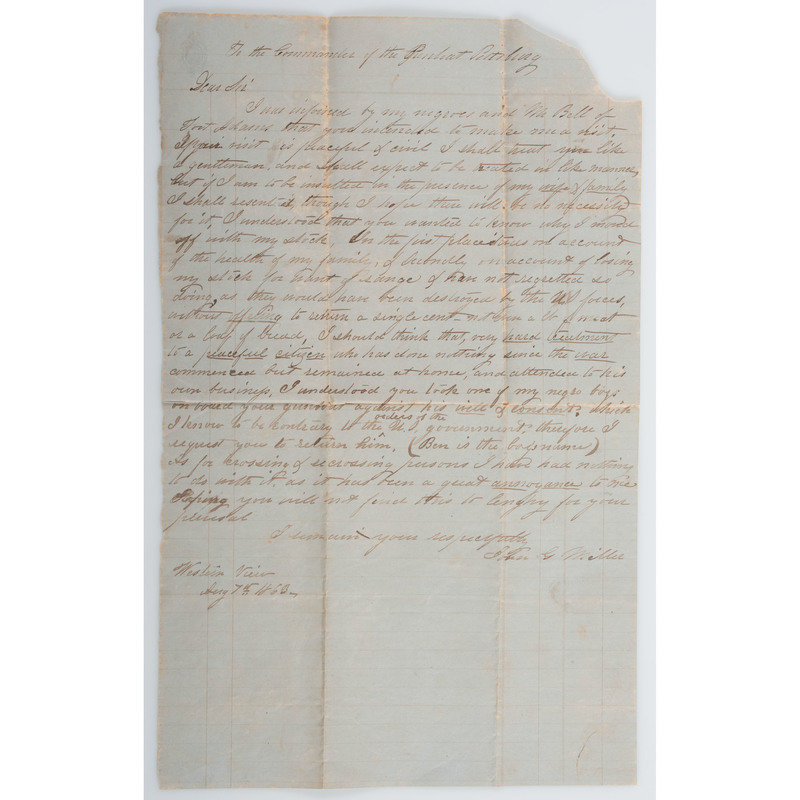 To the Commander of the Gunboat Pittsburg
Dear Sir
I was informed by my negroes and Mr Bell of
Fort Adams that you intended to make me a visit.
If your visit is peaceful & civil I shall treat you like
a gentleman, and shall expect to be treated in like manner,
but if I am to be insulted in the presence of my wife & family
I shall resent it, though I hope there will be no necessity
for it, I understood that you wanted to know why I moved
off with my stock. In the first place it was on account
of the health of my family, & secondly on account of losing
my stock for want of range & have not regretted so
doing, as they would have been destroyed by the U.S forces,
without to return a single cent not even a lb of meat
or a loaf of bread, I should think that very hard treatment
to a peaceful citizen who has done nothing since the war
commenced but remained at home, and attended to his
own business, I understood you took one of my negro boys
on board your gunboat against his will & consent? which
I know to be contrary to the orders of the U.S. government? therefore I
request you to return him, (Ben is the boys name)
As for crossing & recrossing persons I have had nothing
to do with it. as it has been a great annoyance to me
Hoping you will not find this to lenghy for your
perusal
I remain your respectfully
John G Miller
Western View
Aug 7th 1863